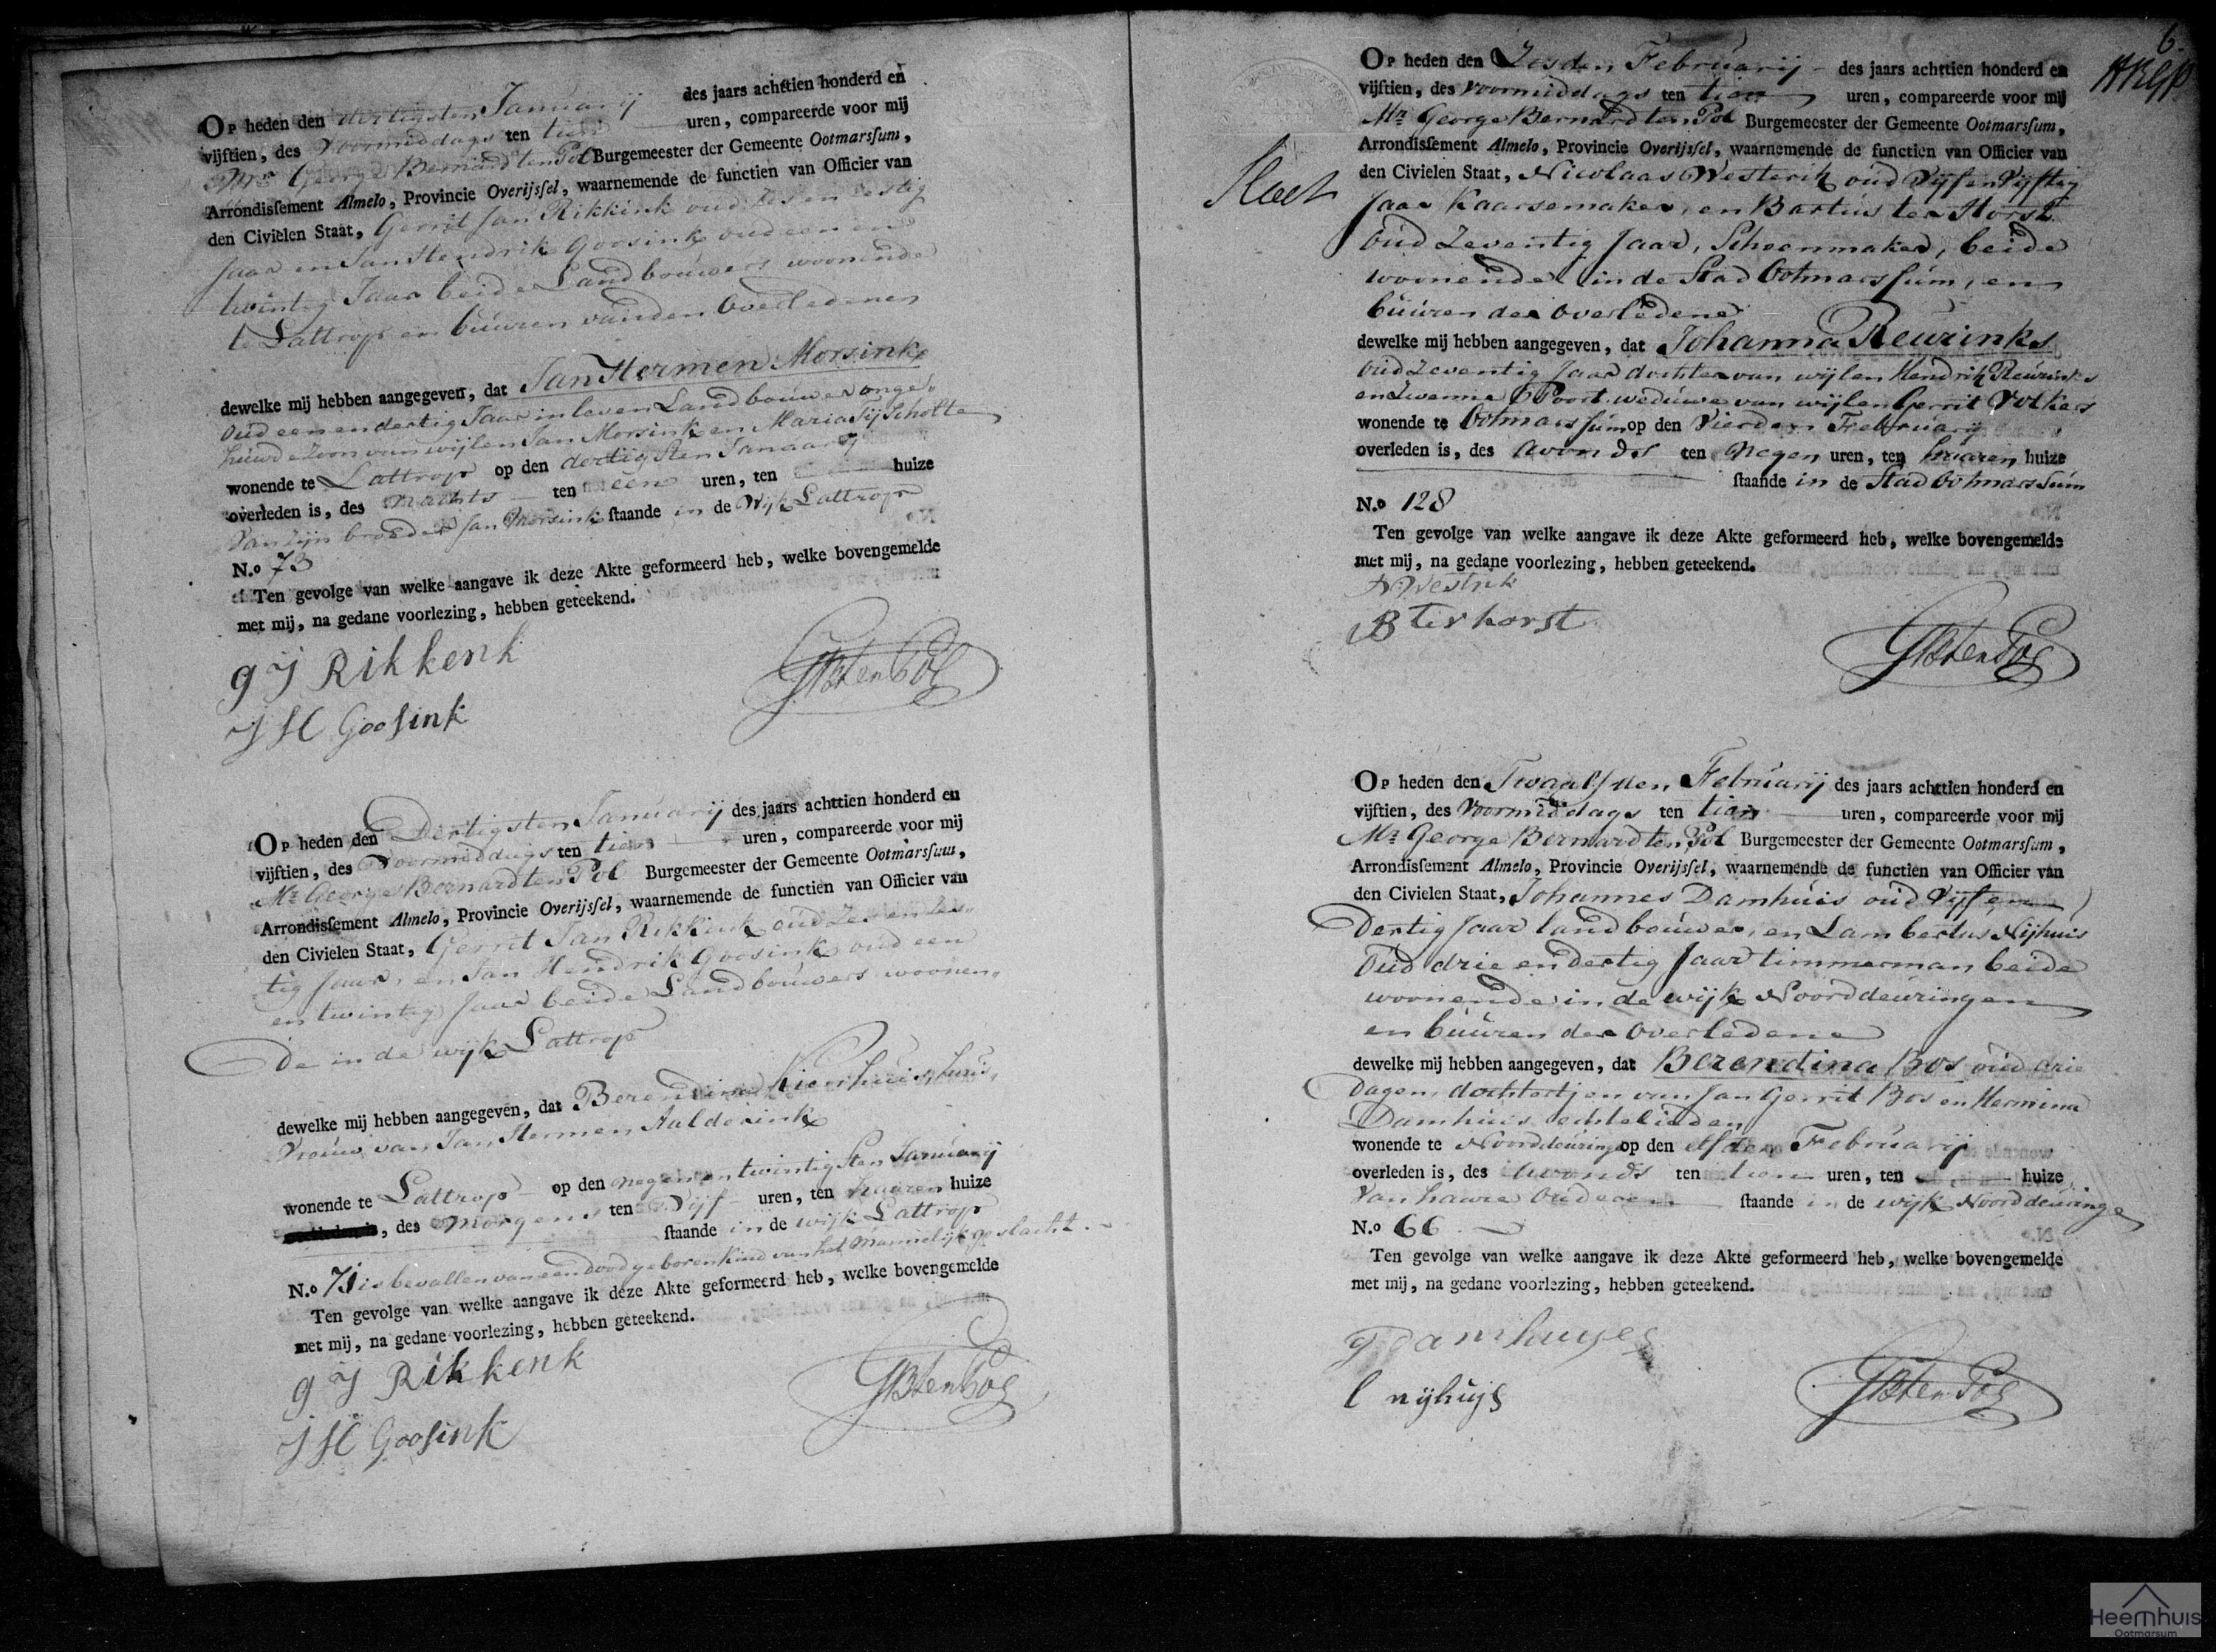 Op heden den dertigsten Januarij des jaars achttien honderd en
vijftien, des Voormiddags ten tien uren, compareerde voor mij
Mr. George Bernard ten Pol Burgemeester der Gemeente Ootmarsſum,
Arrondisſement Almelo, Provincie Overijsſel, waarnemende de functien van Officier van
den Civielen Staat, Gerrit Jan Rikkink oud Zes en Zestig
Jaar en Jan Hendrik Goosink oud een en
twintig Jaar beide Landbouwers woonende
te Lattrop en buuren van den Overledenen
dewelke mij hebben aangegeven, dat Jan Hermen Morsink
Oud een en dertig Jaar in leven Landbouwer onge-
huwde Zoon van wijlen Jan Morsink en Maria Scholte
wonende te Lattrop op den dertigsten Januarij
overleden is, des nachts ten een uren, ten huize
van zijn broeder Jan Morsink ſtaande in de Wijk Lattrop
N.o 73
Ten gevolge van welke aangave ik deze Akte geformeerd heb, welke bovengemelde
met mij, na gedane voorlezing, hebben geteekend.
g J Rikkenk
J H Gooſink
GB ten Pol
Op heden den Dertigsten Januarij des jaars achttien honderd en
vijftien, des Voormiddags ten tien uren, compareerde voor mij
Mr. George Bernard ten Pol Burgemeester der Gemeente Ootmarsſum,
Arrondisſement Almelo, Provincie Overijsſel, waarnemende de functien van Officier van
den Civielen Staat, Gerrit Jan Rikkink oud Zes en Zes-
tig Jaar, en Jan Hendrik Goosink oud een
en twintig Jaar beide Landbouwers woonen-
de in de wijk Lattrop
dewelke mij hebben aangegeven, dat Berendina Nienhuis, huis-
Vrouw van Jan Hermen Aalderink
wonende te Lattrop op den negen en twintigsten Januarij
, des morgens ten Vijf uren, ten haaren huize
ſtaande in de wijk Lattrop
N.o 71 is bevallen van een dood geboren kind van het Mannelijk geslacht.
Ten gevolge van welke aangave ik deze Akte geformeerd heb, welke bovengemelde
met mij, na gedane voorlezing, hebben geteekend.
g J Rikkenk
J H Gooſink
GB ten Pol
6.
Op heden den Zesden Februarij des jaars achttien honderd en
vijftien, des Voormiddags ten tien uren, compareerde voor mij
Mr. George Bernard ten Pol Burgemeester der Gemeente Ootmarsſum,
Arrondisſement Almelo, Provincie Overijsſel, waarnemende de functien van Officier van
den Civielen Staat, Nicolaas Westerik oud Vijf en Vijftig
Jaar Kaarsemaker, en Bartus ter Horst
Oud Zeventig Jaar, Schoenmaker, beide
woonende in de Stad Ootmarsſum, en
buuren der overledene
dewelke mij hebben aangegeven, dat Johanna Reurinks
Oud Zeventig Jaar dochter van wijlen Hendrik Reurinks
en Zwenne Poort weduwe van wijlen Gerrit Volkers
wonende te Ootmarsſum op den Vierden Februarij
overleden is, des avonds ten Negen uren, ten haaren huize
ſtaande in de Stad Ootmarssum
N.o 128
Ten gevolge van welke aangave ik deze Akte geformeerd heb, welke bovengemelde
met mij, na gedane voorlezing, hebben geteekend.
N Westrik
B terhorst
GB ten Pol
Op heden den Twaalfden Februarij des jaars achttien honderd en
vijftien, des Voormiddags ten tien uren, compareerde voor mij
Mr. George Bernard ten Pol Burgemeester der Gemeente Ootmarsſum,
Arrondisſement Almelo, Provincie Overijsſel, waarnemende de functien van Officier van
den Civielen Staat, Johannes Damhuis oud Vijf en
Dertig Jaar landbouwer, en Lambertus Nijhuis
Oud drie en dertig Jaar timmerman beide
woonende in de wijk Noorddeuringen
en buuren der Overledene
dewelke mij hebben aangegeven, dat Berendina Bos oud drie
Dagen, dochtertjen van Jan Gerrit Bos en Hermina
Damhuis echtelieden
wonende te Noorddeuring op den elfden Februarij
overleden is, des avonds ten tien uren, ten huize
van haare Ouderen ſtaande in de wijk Noorddeuringe
N.o 66
Ten gevolge van welke aangave ik deze Akte geformeerd heb, welke bovengemelde
met mij, na gedane voorlezing, hebben geteekend.
g damhuyes
l nijhuys
GB ten Pol
Heemhuis
Ootmarsum